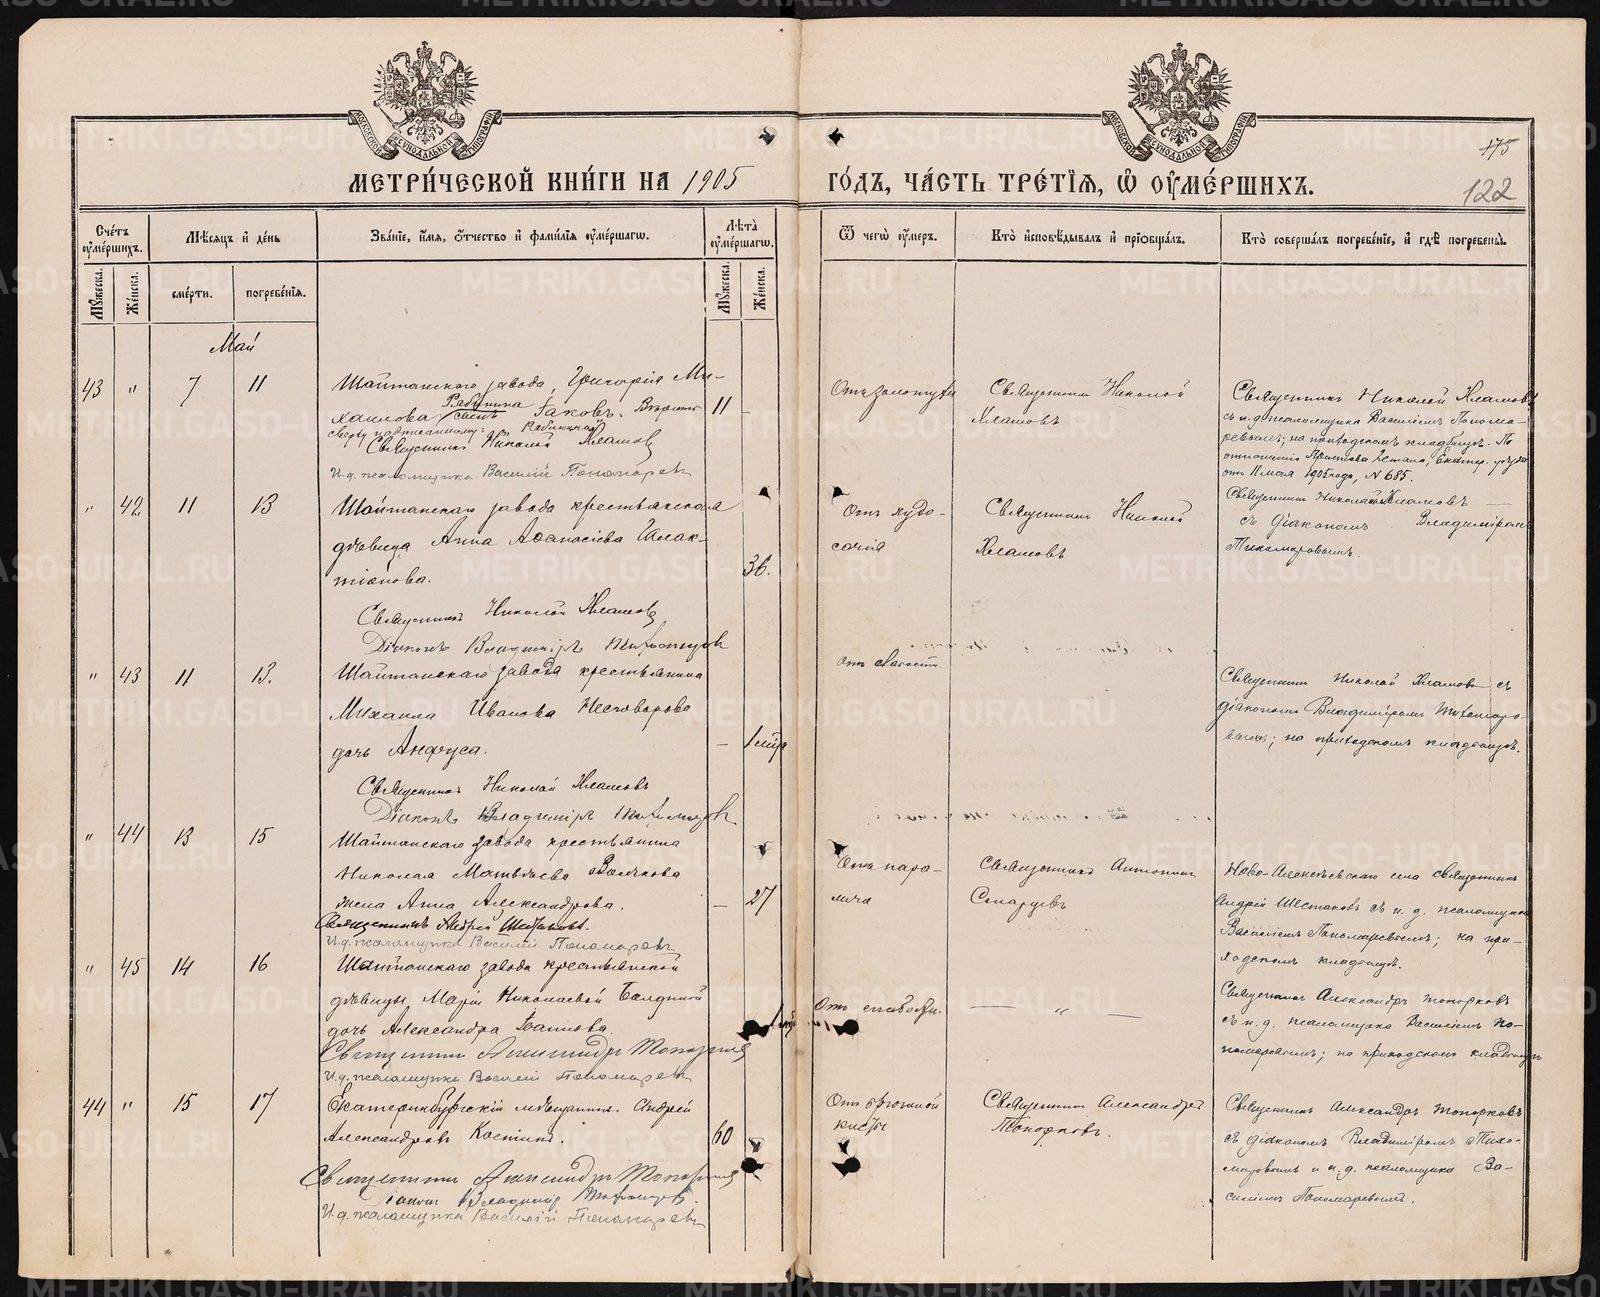 МЕТРИ́ЧЕСКОЙ КНИ́ГИ НА 1905
ГО́ДЪ, ЧА́СТЬ ТРЕ́ТІѦ, Ѽ ОУМЕ́РШИХЪ.
175
122
Сче́тъ оуме́ршихъ.
Мѣсяцъ и де́нь
Зва́ніе, и́мя, ѻ́тчество и фами́лія оуме́ршагѡ.
Лѣта̀ оуме́ршагѡ.
Ѿ чегѡ̀ оу́меръ.
Кто̀ исповѣ́дывалъ и пріѡбща́лъ.
Кто̀ соверша́лъ погребе́ніе, и гдѣ̀ погребены̀.
Му́жеска.
Же́нска.
сме́рти.
погребе́нія.
Му́жеска.
Же́нска.
Май
43 " 7 11
Шайтанскаго завода, Григорія Ми-
хаилова Рябинина сынъ Іаковъ.
11 -
Священникъ Николай Хламовъ
И.д. псаломщика Василій Пономаревъ
Отъ золотухи
Священникъ Николай
Хламовъ
Священникъ Николай Хламовъ
съ и.д. псаломщика Василіемъ Понома-
ревымъ; на приходскомъ кладбищѣ. По
отношенію Пристава 2 стана, Екатер. уѣзда
отъ 11 мая 1905 года, № 685.
" 42 11 13
Шайтанскаго завода крестьянская
дѣвица Анна Аѳанасіева Галак-
тіонова.
36.
Священникъ Николай Хламовъ
Діаконъ Владиміръ Тихомировъ
Отъ худо-
сочія
Священникъ Николай
Хламовъ
Священникъ Николай Хламовъ
съ діакономъ Владиміромъ
Тихомировымъ.
" 43 11 13.
Шайтанскаго завода крестьянина
Михаила Иванова Несговорова
дочь Анѳуса.
- 1
Священникъ Николай Хламовъ
Діаконъ Владиміръ Тихомировъ
Отъ слабости
Священникъ Николай Хламовъ съ
діакономъ Владиміромъ Тихомиро-
вымъ; на приходскомъ кладбищѣ.
" 44 13 15
Шайтанскаго завода крестьянина
Николая Матвѣева
жена Анна Александрова.
- 27
Священникъ Андрей Шестаковъ.
И.д. псаломщика Василій Пономаревъ
Отъ пара-
лича
Священникъ Антоній
Ново-Алексѣевскаго села священникъ
Андрей Шестаковъ съ и. д. псаломщика
Василіемъ Пономаревымъ; на при-
ходскомъ кладбищѣ.
" 45 14 16
Шайтанскаго завода крестьянской
дѣвицы Маріи Николаевой
дочь Александра Іванова.
Священникъ Александръ Топорковъ
И.д. псаломщика Василій Пономаревъ
Отъ слабости.
— " —
Священникъ Александръ Топорковъ
съ и. д. псаломщика Василіемъ По-
номаревымъ; на приходскомъ кладбищѣ
44 " 15 17
Екатеринбургскій мѣщанинъ Андрей
Александровъ Костинъ.
60
Священникъ Александръ Топорковъ
Діаконъ Владиміръ Тихомировъ.
И.д. псаломщика Василій Пономаревъ
Священникъ Александръ
Топорковъ.
Священникъ Александръ Топорковъ
съ діакономъ Владиміромъ Тихо-
мировымъ и и. д. псаломщика Ва-
силіемъ Пономаревымъ.
METRIKI.GASO-URAL.RU